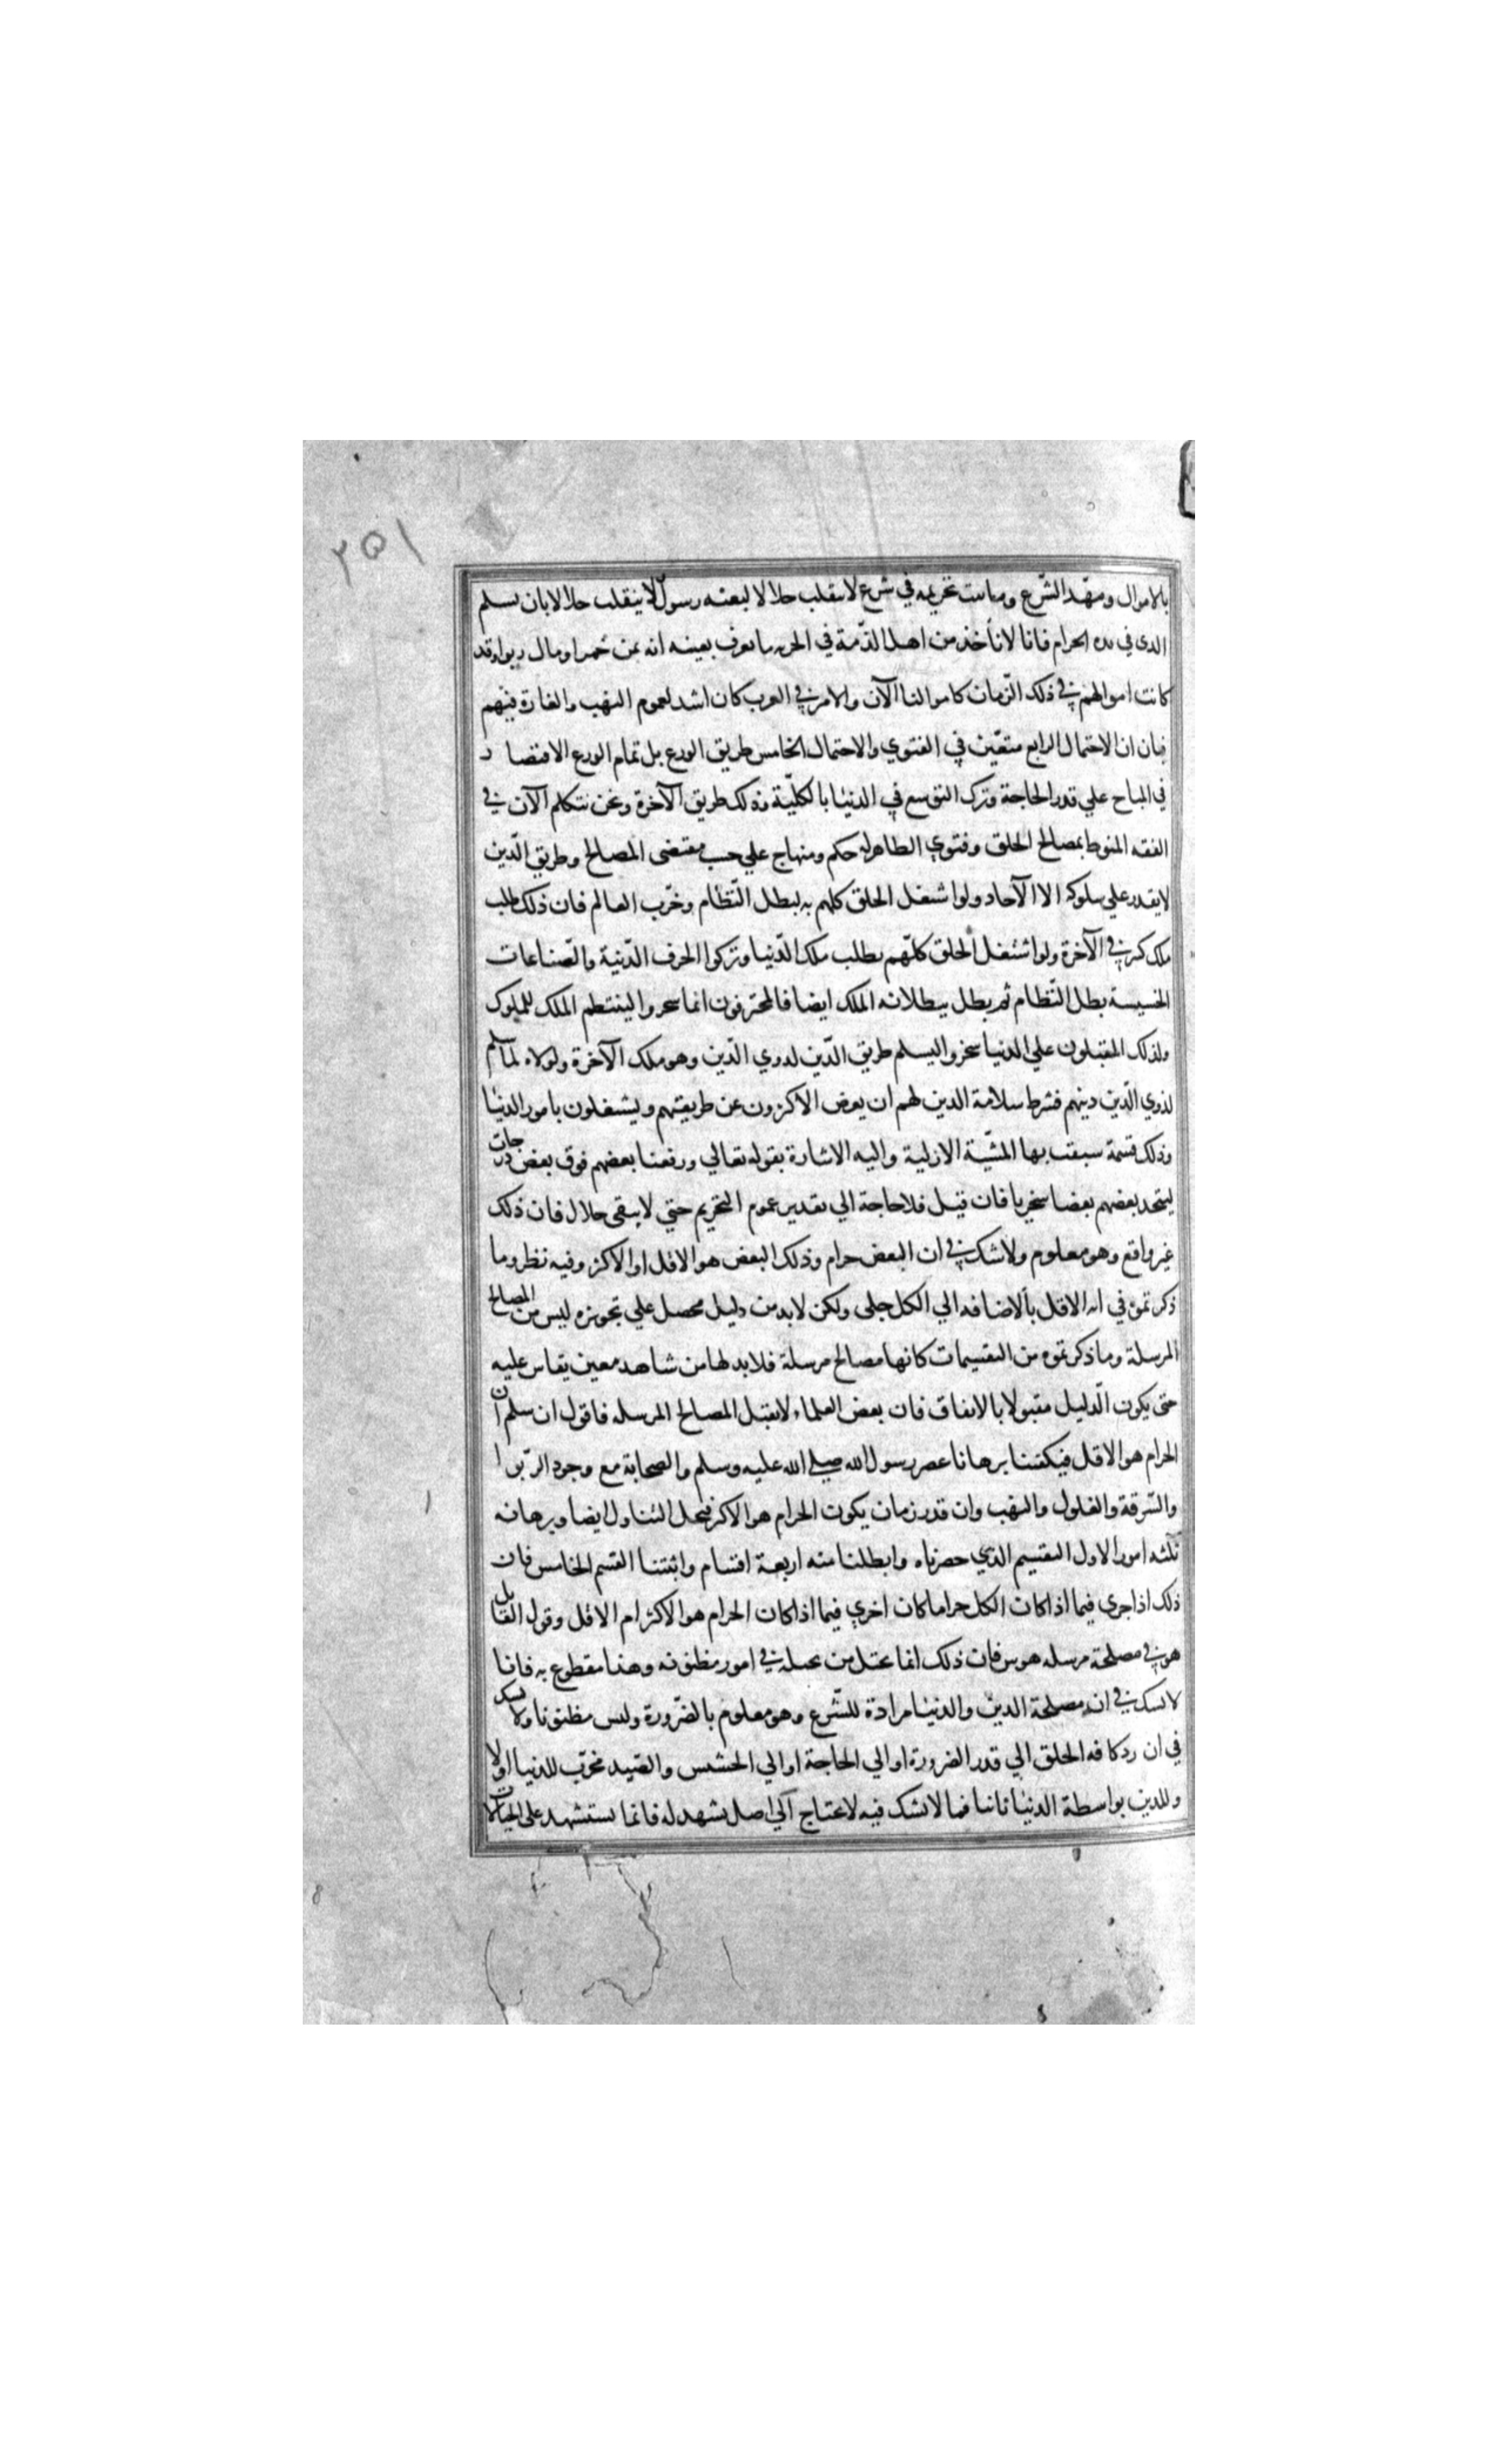 ٢٥١
بالاموال ومهّد الشّرع وما ثبت تحريمه في شرع لا ينقلب حلالا لبعثه رسول لا ينقلب حلالا بان يسلم
الذى في يده الحرام فانا لا نأخذ من اهل الذّمة في الجزيه ما نعرف بعينه انه ثمن خمر او مال ربوا وقد
كانت اموالهم في ذلك الزّمان كاموالنا الآن والامر في العرب كان اشد لعموم النهب والغارة فيهم
فبان ان الاحتمال الرابع متعيّن في الفتوي والاحتمال الخامس طريق الورع بل تمام الورع الاقتصا ر
في المباح علي قدر الحاجة وترك التوسع في الدنيا بالكليّة وذلك طريق الآخرة ونحن نتكلم الآن في
الفقه المنوط بمصالح الخلق وفتوي الظاهر له حكم ومنهاج علي حسب مقتضى المصالح وطريق الّدين
لا يقدر علي سلوكه الا الآحاد ولو اشتغل الخلق كلهم به لبطل النّظام وخرّب العالم فان ذلك طلب
ملك كبير في الآخرة ولو اشتغل الخلق كلّهم بطلب ملك الدّنيا وتركوا الحرف الدّنية والصّناعات
الخسيسة بطل النّظام ثم يطل ببطلانه الملك ايضا فالمحترفون انما سخروا لينتظم الملك للملوك
ولذلك المقبلون علي الدنيا سخروا ليسلم طريق الدّين لذوي الدّين وهو ملك الآخرة ولولاه لما سلم
لذوي الدّين دينهم فشرط سلامة الدين لهم ان يعرض الاكثرون عن طريقتهم ويشتغلون بامور الدنيا
وذلك قسمة سبقت بها المشيّة الازلية واليه الاشارة بقوله تعالي ورفعنا بعضهم فوق بعض درجات
ليتخذ بعضهم بعضا سخريا فان قيل فلا حاجة الي تقدير عموم التحريم حتي لا يبقى حلال فان ذلك
غير واقع وهو معلوم ولا شك في ان البعض حرام وذلك البعض هو الاقل او الاكثر وفيه نظر وما
ذكرتموه في انه الاقل بالاضافه الي الكل جلى ولكن لا بد من دليل محصل علي تجويزه ليس من المصالح
المرسلة وما ذكرتموه من التقسيمات كانها مصالح مرسلة فلا بد لها من شاهد معين يقاس عليه
حتى يكون الّدليل مقبولا بالاتفاق فان بعض العلماء لا يقبل المصالح المرسله فاقول ان سلم ان
الحرام هو الاقل فيكفينا برهانا عصر رسول الله صلي الله عليه وسلم والصحابة مع وجود الرّبوا
والسّرقة والغلول والنهب وان قدر زمان يكون الحرام هو الاكثر فيحل التناول ايضا وبرهانه
ثلثه امور الاول التقسيم الذي حصرناه وابطلنا منه اربعة اقسام واثبتنا القسم الخامس فان
ذلك اذا جرى فيما اذا كان الكل حراما كان احري فيما اذا كان الحرام هو الاكثر ام الاقل وقول القايل
هو في مصلحة مرسله هوس فان ذلك انما تخيل من تخيله في امور مظنونه وهذا مقطوع به فانا
لا نشك في ان مصلحة الدين والدنيا مرادة للشّرع وهو معلوم بالضّرورة وليس مظنونا ولا شك
في ان رد كافه الخلق الي قدر الضرورة او الي الحاجة او الي الحشيش والصّيد مخرّب للدنيا اولا
وللدين بواسطة الدنيا ثانيا فما لا يشك فيه لا يحتاج الي اصل يشهد له فانما يستشهد على الخيالات